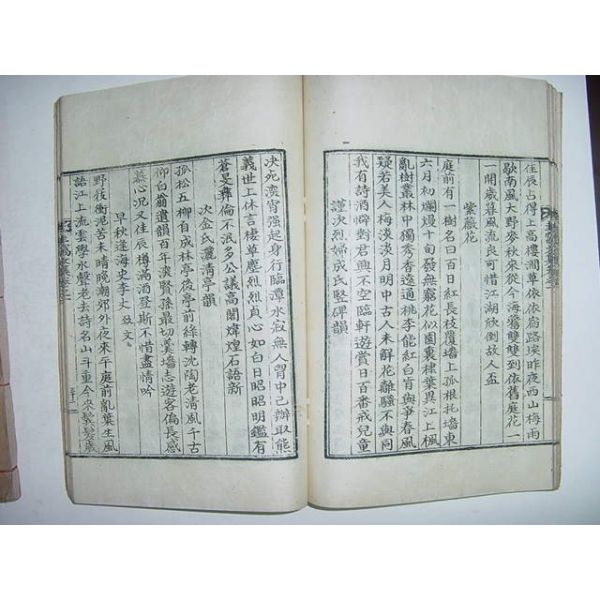 佳辰占得上高樓闤草依依夾路埃昨夜西山梅雨
歇南風大野麥秋來從今海鷰雙雙到依舊庭花一
一開歲暮風流良可惜江湖欣倒故人盃
紫薇花
庭前有一樹名曰百日紅長枝覆墻上孤根托墻東
六月初爛熳十旬發無窮花似園裏棣葉異江上楓
亂樹叢林中獨秀香遠通桃李能紅白肯與爭春風
疑若美人梅淡淡月明中古人未鮮花離騷不與同
我有詩酒醉對君興不空臨軒遊賞日百番戒兒童
謹次烈婦成氏竪碑韻
决死濱宵强起身行臨潭水寂無人胷中已辦取熊
義世上休言棲草塵烈烈貞心如白日昭昭明鑑有
蒼旻彜倫不泯多公議高閣煒煌石語新
次金氏濯淸亭韻
孤松五柳自成林亭後亭前絲轉沈陶老淸風千古
柳白翁遺韻百年深賢孫最切羹墻志遊客偏長感
慕心况又佳辰樽滿酒登斯不惜盡情吟
早秋逢海史李丈 文
野筏衝泥苦未晴晩朝郊外夜來平庭前亂葉生風
語江上流雲學水聲老去詩名山斗重今來鬂髮歲